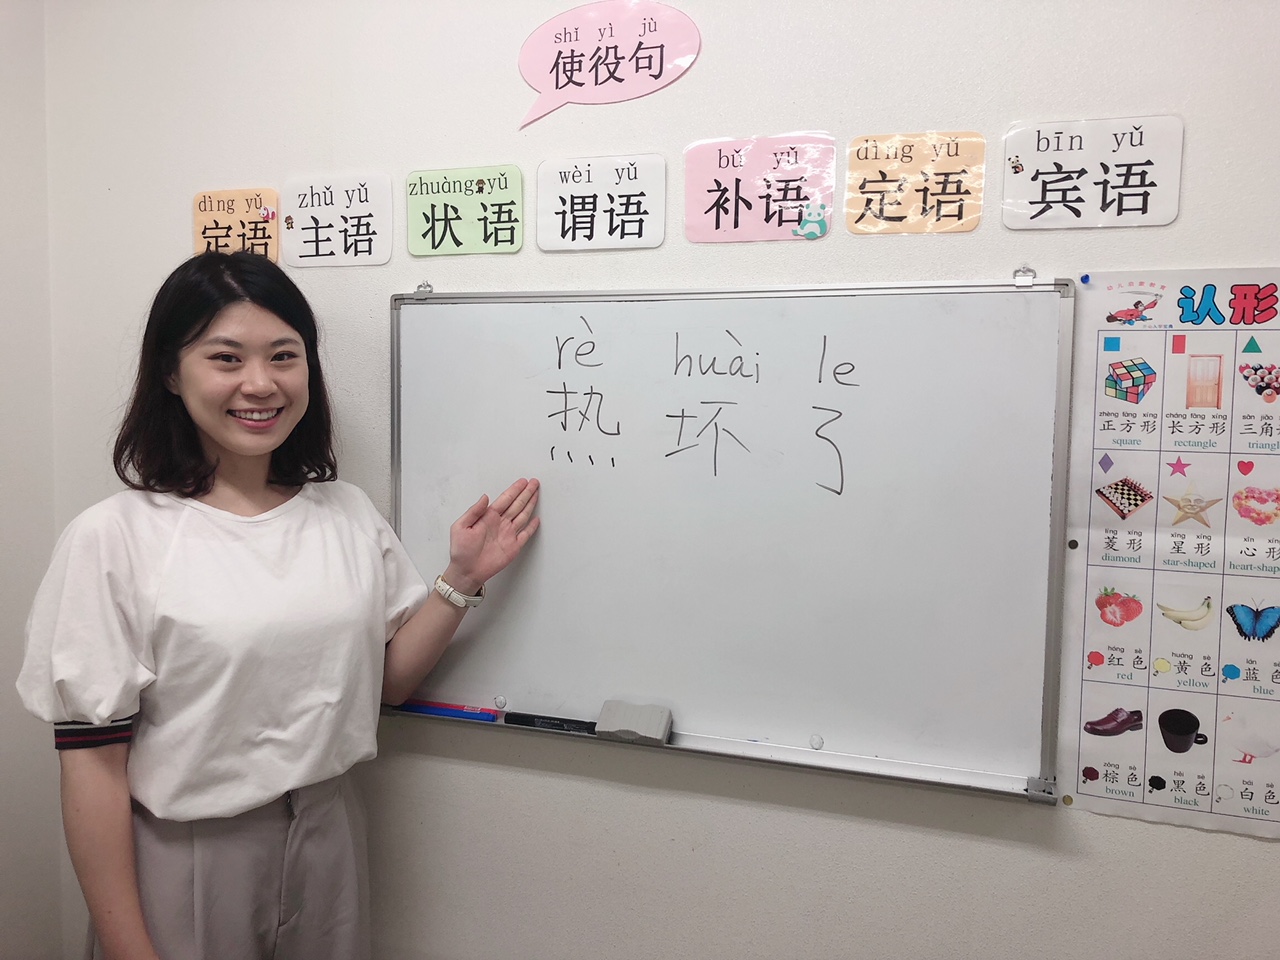 shǐ yì jù
使役句
dìng yǔ
定语
zhǔ yǔ
主语
zhuàng yǔ
状语
wèi yǔ
谓语
bǔ yǔ
补语
dìng yǔ
定语
bīn yǔ
宾语
rè huài le
热坏了
认形
zhèng fāng xíng
正方形
square
cháng fāng xíng
长方形
rectangle
sān jiǎo
三角
líng xíng
菱形
diamond
xīng xíng
星形
star-shaped
xīn xíng
心形
hóng sè
红色
red
huáng sè
黄色
yellow
lán sè
蓝色
blue
zōng sè
棕色
brown
hēi sè
黑色
black
bái sè
白色
white